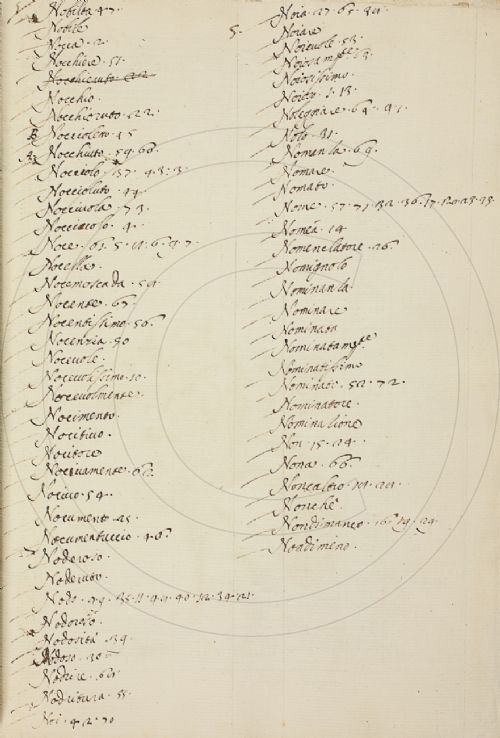 Nobiltà 47.
Nobile
Nocca . 2.
Nocchiere . 51.
Nocchieruto
Nocchio .
Nocchioruto . 22.
Noccioletto . 45
Nocchiuto . 59. 60.
Nocciolo . 37.
Noccioluto . 44
Nocciuola . 73.
Noce
Nocella .
Nocemoscada . 59.
Nocente . 65
Nocentissimo . 56.
Nocenzia . 50
Nocevole .
Nocevolissimo . 10.
Nocevolmente .
Nocimento .
Nocitivo .
Nocitore
Nocivamente . 62.
Nocivo . 54.
Nocumento . 25.
Nocumentuccio . 40.
Noderoso .
Noderuto .
Nodo
Nodoroso .
Nodosità . 39.
Nodoso . 30
Nodrire . 60.
Nodritura . 55.
Noi . 4. 2. 70
5.
Noia . 27. 65.
Noiare
Noievole . 53.
Noiosissimo .
Noleggiare 64. 91.
Nolo . 31.
Nomanza . 69.
Nomare .
Nomato .
Nome . 57. 71. 32. 36. 17. 120. 23. 25.
Nomea . 14
Nomenclatore . 26
Nomignolo
Nominanza .
Nominare
Nominata
Nominatamte
Nominatissimo
Nominato . 50. 72.
Nominatore .
Nominazione
Non . 15. 24.
Nona . 66.
Noncaltro
Nonchè .
Nondimanco . 16. 19. 29.
Nondimeno .